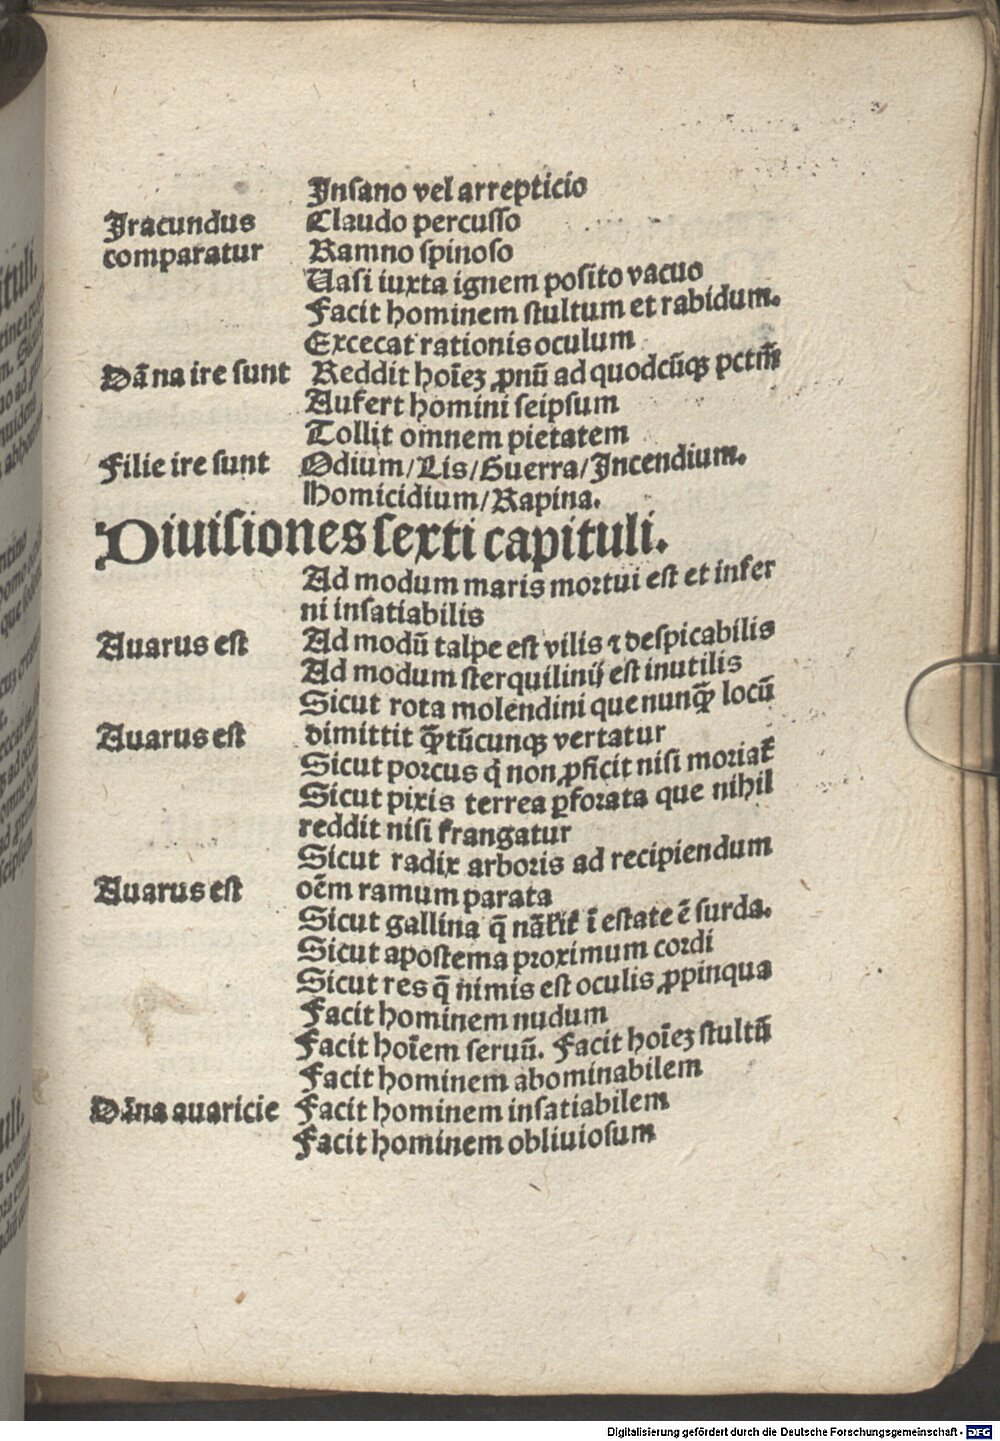 Insano vel arrepticio
Iracundus Claudo percusso
comparatur Ramno spinoso
Uasi iuxta ignem posito vacuo
Facit hominem stultum et rabidum.
Excecat rationis oculum
Dāna ire sunt Reddit hoīeꝫ ꝓnū ad quodcūqꝫ pctm̄
Aufert homini seipsum
Tollit omnem pietatem
Filie ire sunt Odium/Lis/Guerra/Incendium.
Homicidium/Rapina.
Diuisiones sexti capituli.
Ad modum maris mortui est et infer
ni insatiabilis
Auarus est Ad modū talpe est vilis ⁊ despicabilis
Ad modum sterquilinij est inutilis
Sicut rota molendini que nunqꝫ̄ locū
Auarus est dimittit qꝫ̄tūcunqꝫ vertatur
Sicut porcus q̇ non ꝓficit nisi moriat᷑
Sicut pixis terrea ꝑforata que nihil
reddit nisi frangatur
Sicut radix arboris ad recipiendum
Auarus est oēm ramum parata
Sicut gallina q̄ nāscit᷑ ī estate ē surda.
Sicut apostema proximum cordi
Sicut res q̄ nimis est oculis ꝓpinqua
Facit hominem nudum
Facit hoīem seruū. Facit hoīeꝫ stultū
Facit hominem abominabilem
Dāna auaricie Facit hominem insatiabilem
Facit hominem obliuiosum
Digitalisierung gefördert durch die Deutsche Forschungsgemeinschaft - DFG